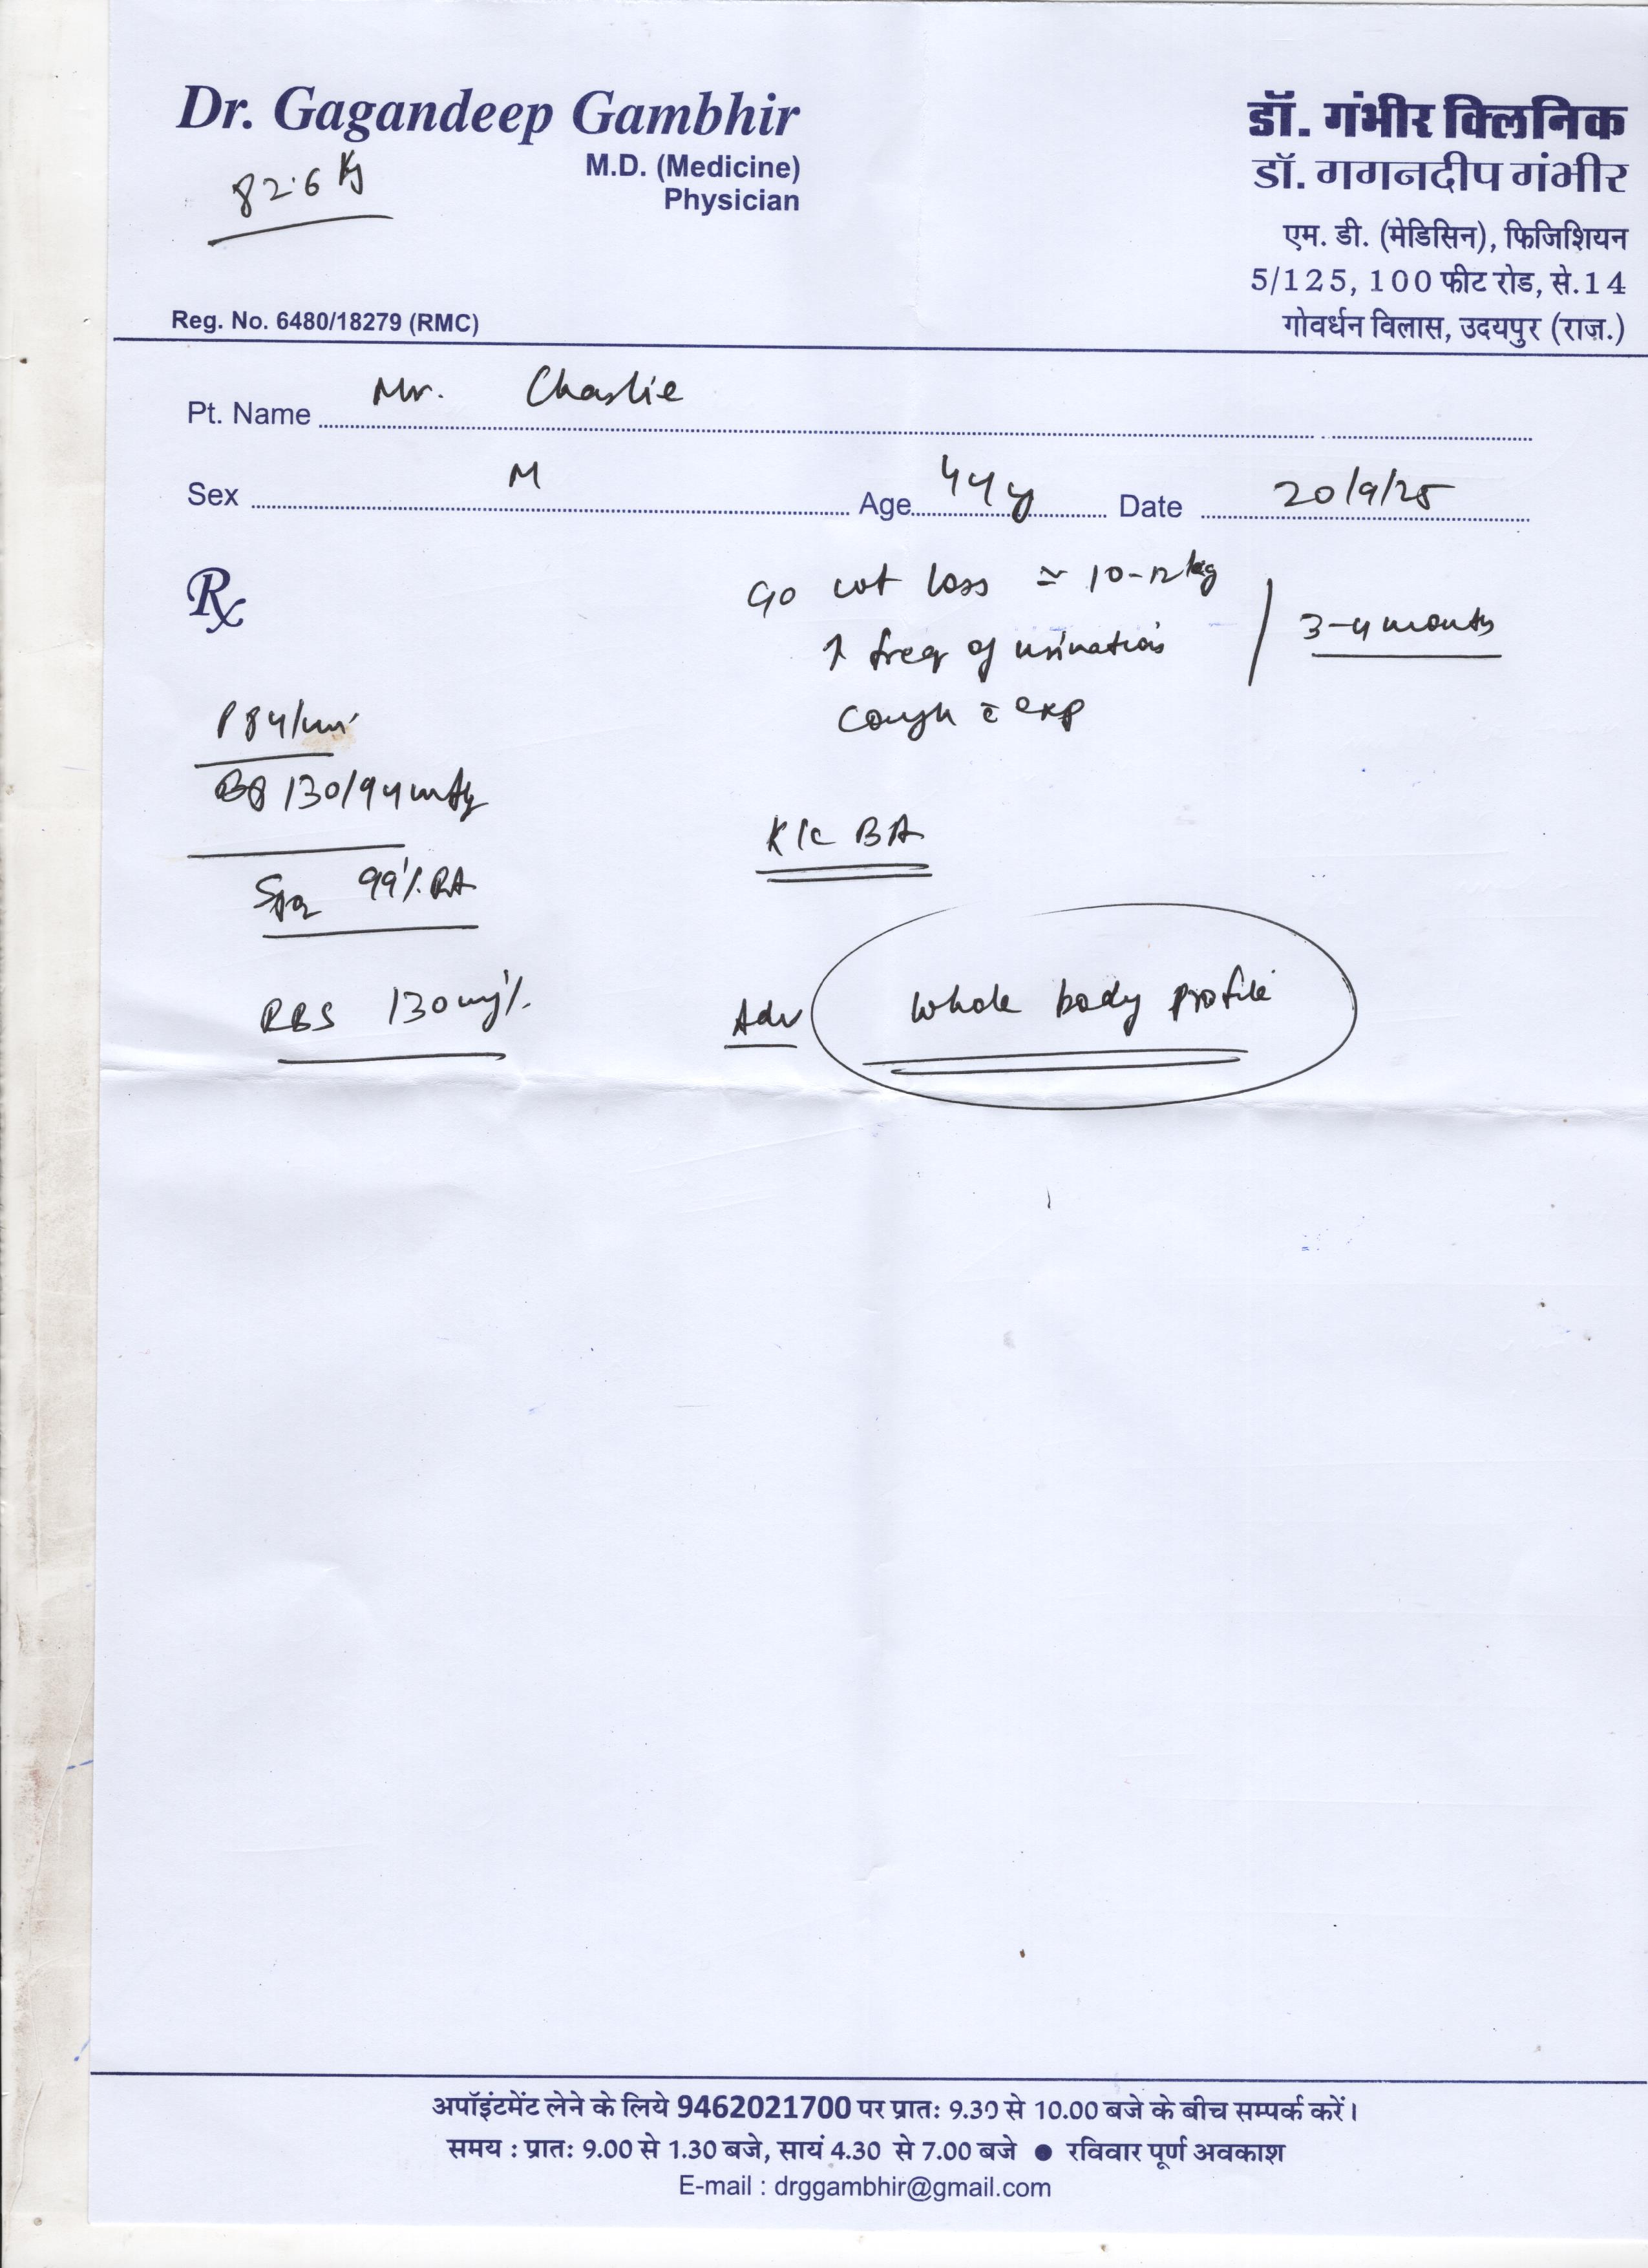 Dr. Gagandeep Gambhir
M.D. (Medicine)
Physician
82.6 Kg
Reg. No. 6480/18279 (RMC)
डॉ. गंभीर क्लिनिक
डॉ. गगनदीप गंभीर
एम. डी. (मेडिसिन), फिजिशियन
5/125, 100 फीट रोड, से.14
गोवर्धन विलास, उदयपुर (राज.)
Pt. Name Mr. Charlie
Sex M Age 44y Date 20/9/25
Rx
c/o wt loss ≃ 10-12 kg
↑ freq of urination / 3-4 months
cough c̄ exp
P 84/min
BP 130/94 mmHg
K/c BA
SpO2 99% RA
RBS 130 mg%
Adv Whole body profile
अपॉइंटमेंट लेने के लिये 9462021700 पर प्रातः 9.30 से 10.00 बजे के बीच सम्पर्क करें।
समय : प्रातः 9.00 से 1.30 बजे, सायं 4.30 से 7.00 बजे ● रविवार पूर्ण अवकाश
E-mail : drggambhir@gmail.com